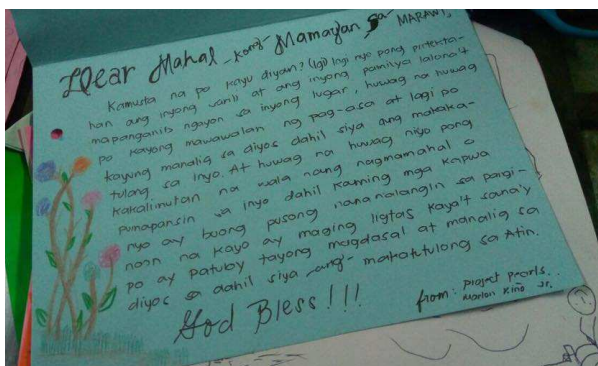 Dear Mahal kong Mamayan sa MARAWI,
Kamusta na po kayo diyan? lagi lagi nyo pong protekta-
han ang inyong sarili at ang inyong pamilya lalona't
mapanganib ngayon sa inyong lugar, huwag na huwag
po kayong mawawalan ng pag-asa at lagi po
kayung manalig sa diyos dahil siya ang makaka-
tulong sa inyo. At huwag na huwag niyo pong
kakalimutan na wala nang nagmamahal o
pumapansin sa inyo dahil kaming mga kapwa
nyo ay buong pusong nananalangin sa pangi-
noon na kayo ay maging ligtas kaya't sana'y
po ay patuby tayong magdasal at manalig sa
diyos dahil siya ang makakatulong sa Atin.
God Bless!!!
from: Project Pearls..
Marlon Kino Jr.